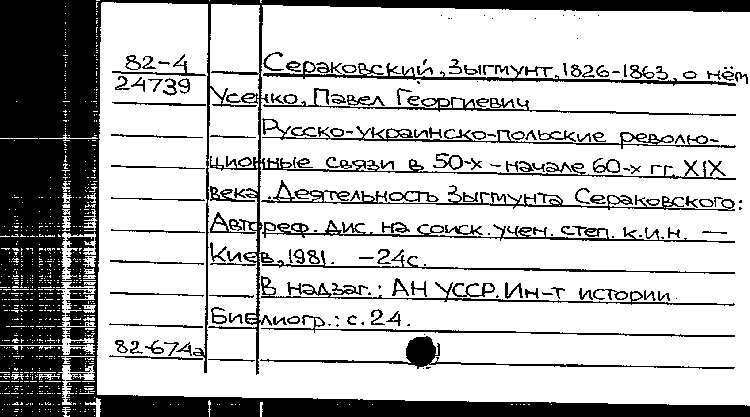 82-4 Сераковский, Зыгмунт, 1826-1863, о нём
24739 Усенко, Павел Георгиевич
Русско-украинско-польские револю-
ционные связи в 50-х - начале 60-х гг. XIX
века. Деятельность Зыгмунта Сераковского:
Автореф. дис. на соиск. учен. степ. к.и.н. —
Киев, 1981. - 24с.
В надзаг.: АН УССР. Ин-т истории
Библиогр.: с. 24.
82-674а